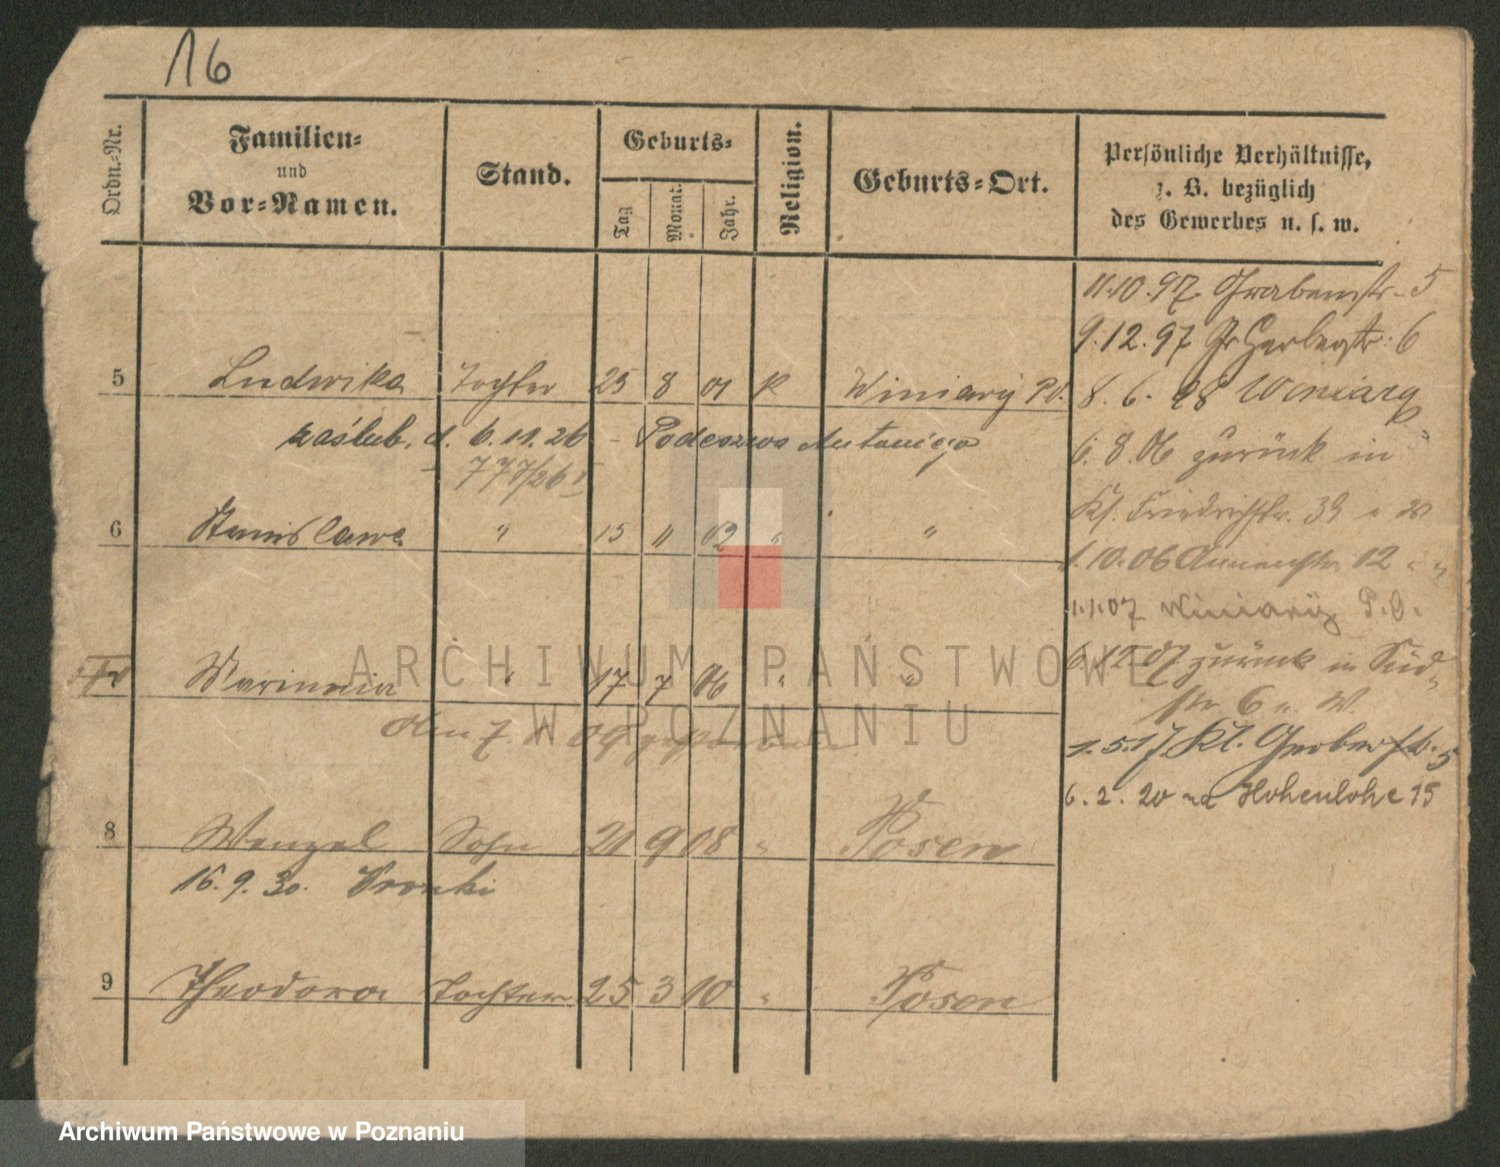 16
Ordn.-Nr.
Familien-
und
Vor-Namen.
Stand.
Geburts-
Tag
Monat.
Jahr.
Religion.
Geburts-Ort.
Persönliche Verhältnisse,
z. B. bezüglich
des Gewerbes u. s. w.
11.10.97 Grabenstr. 5
9.12.97 Gr Gerberstr. 6
5 Ludwika Tochter 25 8 01 k Winiary P.O.
8. 6. 98 Winiary
zaślub. d. 6.11.26 - Podeszwa Antoniego
777/26
6. 8. 06 zurück in
6 Stanislawa " 15 11 02 " "
Kl. Friedrichstr.
1.10.06 Annenstr. 12 " "
1.1.07 Winiary P.O.
Marianna " 17 7 06 " "
6.12.07 zurück in Süd-
str. 6 u. W.
gestorben
1.5.17 Kl. Gerberstr. 5
6. 2. 20 na Hohenlohe 15
8 Wenzel Sohn 21 9 08 " Posen
16. 9. 30. Wronki
9 Theodora Tochter 25 3 10 " Posen
ARCHIWUM PAŃSTWOWE
W POZNANIU
Archiwum Państwowe w Poznaniu